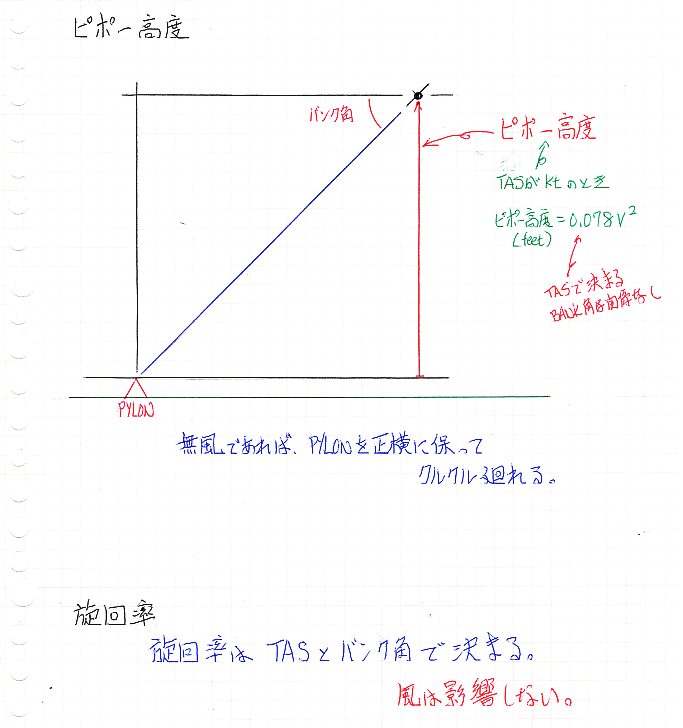 ピポー高度
バンク角
ピポー高度
TASが kt のとき
ピポー高度 = 0.078V²
(feet)
TASで決まる
BANK角は関係なし
PYLON
無風であれば、PYLONを正横に保って
クルクル廻れる。
旋回率
旋回率は TASとバンク角で決まる。
風は影響しない。